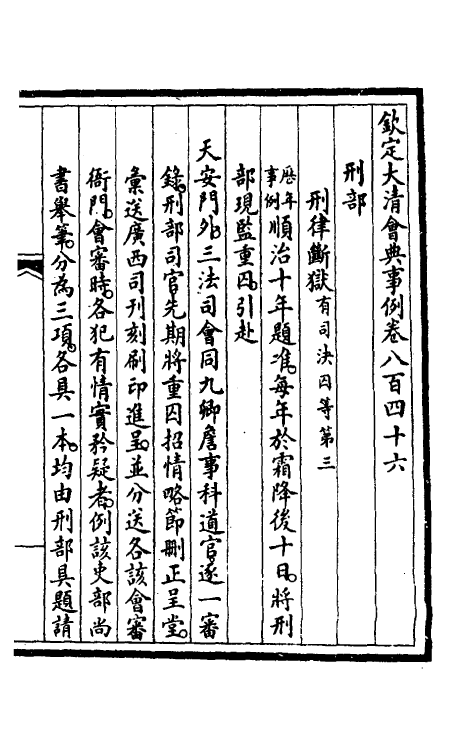 欽定大清會典事例卷八百四十六
刑部
刑律斷獄有司決囚等第三
歷年事例順治十年題准。每年於霜降後十日。將刑
部現監重囚。引赴
天安門外。三法司會同九卿詹事科道官。逐一審
錄。刑部司官。先期將重囚招情略節刪正呈堂。
彙送廣西司刊刻刷印進呈。並分送各該會審
衙門。會審時。各犯有情實矜疑者。例該吏部尚
書舉筆。分為三項。各具一本。均由刑部具題請